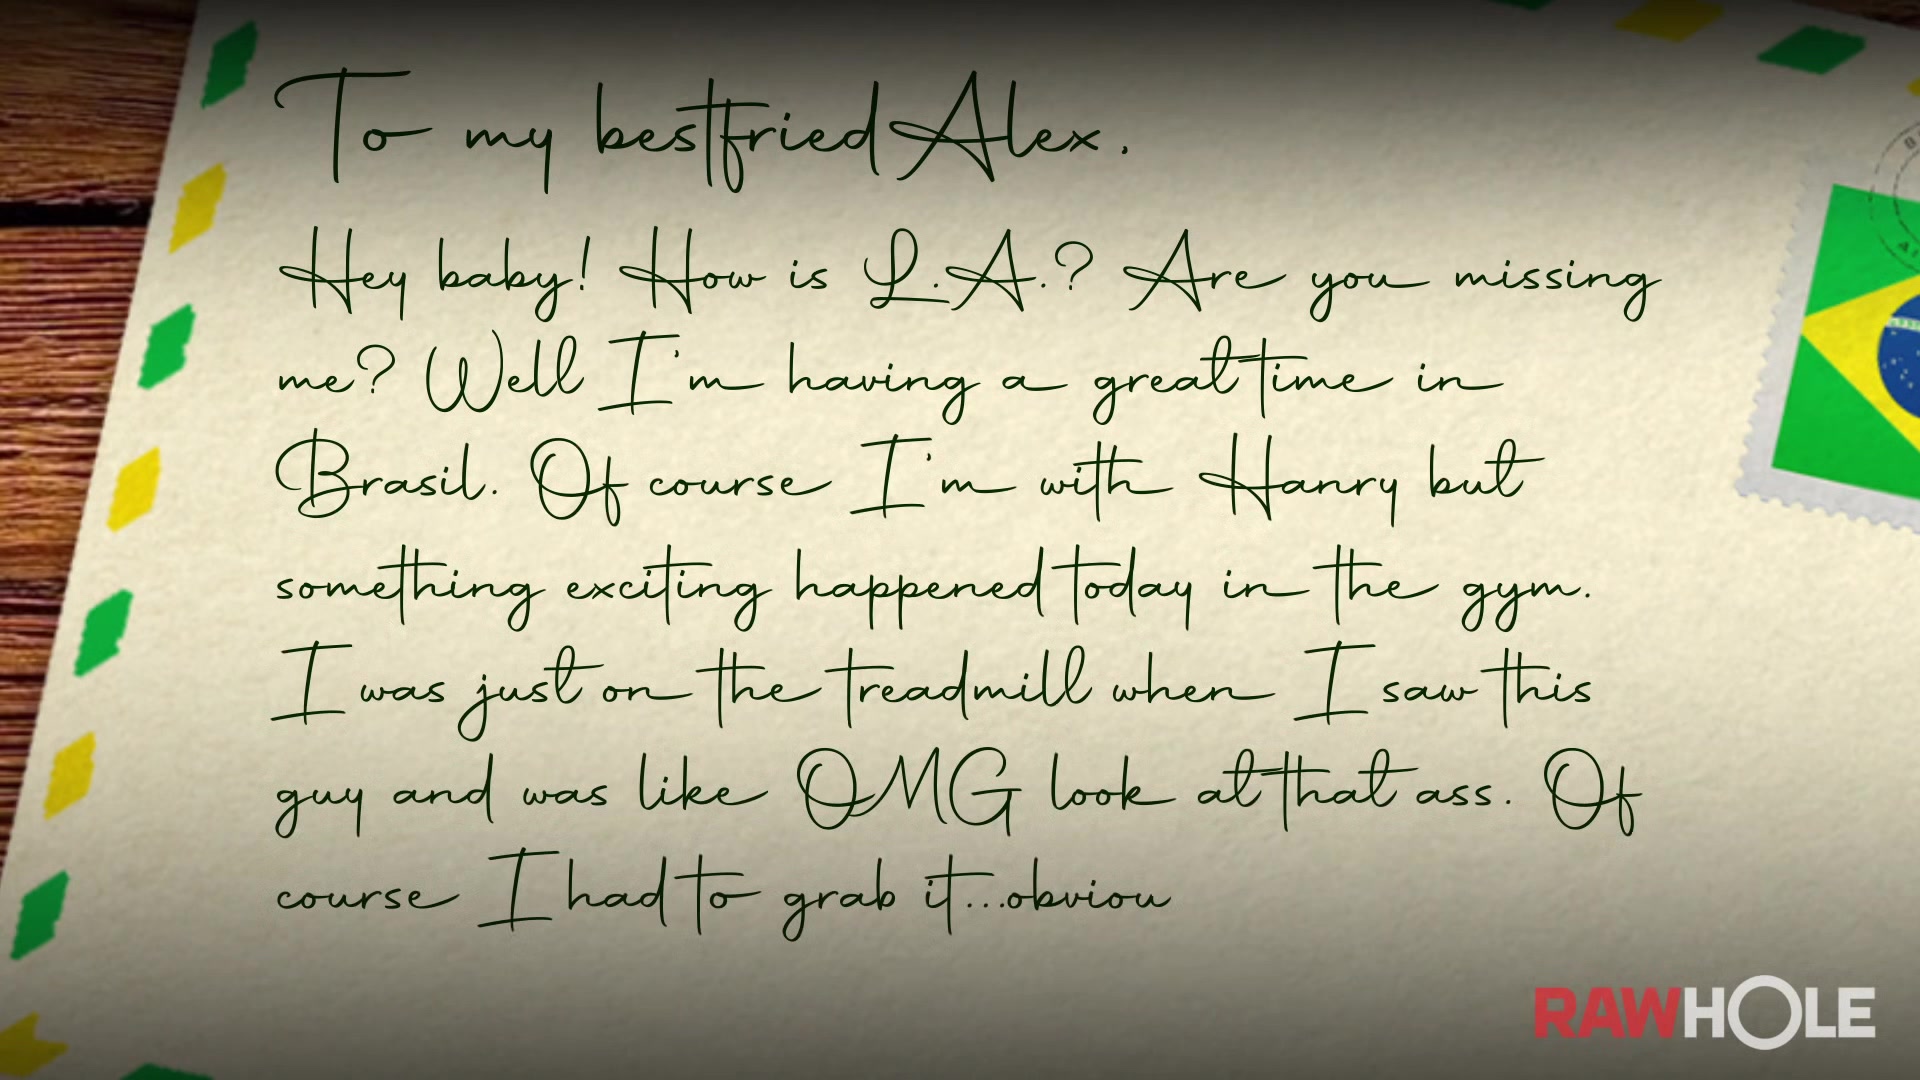 To my bestfried Alex.
Hey baby! How is L.A.? Are you missing
me? Well I'm having a great time in
Brasil. Of course I'm with Hanry but
something exciting happened today in the gym.
I was just on the treadmill when I saw this
guy and was like OMG look at that ass. Of
course I had to grab it...obviou
RAWHOLE